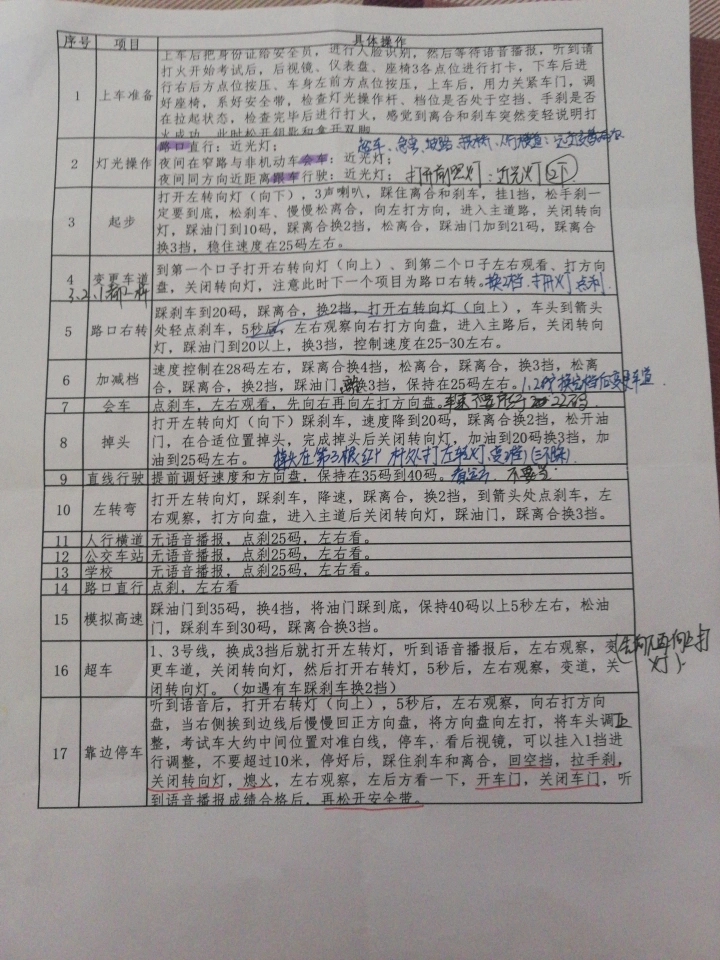 序号 项目 具体操作
1 上车准备
上车后把身份证给安全员，进行人脸识别，然后等待语音播报，听到请
打火开始考试后，后视镜、仪表盘、座椅3各点位进行打卡，下车后进
行右后方点位按压、车身左前方点位按压，上车后，用力关紧车门，调
好座椅，系好安全带，检查灯光操作杆、档位是否处于空挡、手刹是否
在拉起状态，检查完毕后进行打火，感觉到离合和刹车突然变轻说明打
火成功，此时松开钥匙和拿开双脚
2 灯光操作
路口直行：近光灯；
夜间在窄路与非机动车会车：近光灯；
夜间同方向近距离跟车行驶：近光灯； 打开前照灯：近光灯
3 起步
打开左转向灯（向下），3声喇叭，踩住离合和刹车，挂1挡，松手刹一
定要到底，松刹车、慢慢松离合，向左打方向，进入主道路，关闭转向
灯，踩油门到10码，踩离合换2挡，松离合，踩油门加到21码，踩离合
换3挡，稳住速度在25码左右。
4 变更车道
到第一个口子打开右转向灯（向上）、到第二个口子左右观看、打方向
盘，关闭转向灯，注意此时下一个项目为路口右转。换2档、打开灯 点刹
5 路口右转
踩刹车到20码，踩离合，换2挡，打开右转向灯（向上），车头到箭头
处轻点刹车，5秒后，左右观察向右打方向盘，进入主路后，关闭转向
灯，踩油门到20以上，换3挡，控制速度在25-30左右。
6 加减档
速度控制在28码左右，踩离合换4挡，松离合，踩离合，换3挡，松离
合，踩离合，换2挡，踩油门，换3挡，保持在25码左右。
7 会车 点刹车，左右观看，先向右再向左打方向盘。
8 掉头
打开左转向灯（向下）踩刹车，速度降到20码，踩离合换2挡，松开油
门，在合适位置掉头，完成掉头后关闭转向灯，加油到20码换3挡，加
油到25码左右。
9 直线行驶 提前调好速度和方向盘，保持在35码到40码。
10 左转弯
打开左转向灯，踩刹车，降速，踩离合，换2挡，到箭头处点刹车，左
右观察，打方向盘，进入主道后关闭转向灯，踩油门，踩离合换3挡。
11 人行横道 无语音播报，点刹25码，左右看。
12 公交车站 无语音播报，点刹25码，左右看。
13 学校 无语音播报，点刹25码，左右看。
14 路口直行 点刹，左右看
15 模拟高速
踩油门到35码，换4挡，将油门踩到底，保持40码以上5秒左右，松油
门，踩刹车到30码，踩离合换3挡。
16 超车
1、3号线，换成3挡后就打开左转灯，听到语音播报后，左右观察，变
更车道，关闭转向灯，然后打开右转灯，5秒后，左右观察，变道，关
闭转向灯。（如遇有车踩刹车换2挡）
17 靠边停车
听到语音后，打开右转灯（向上），5秒后，左右观察，向右打方向
盘，当右侧挨到边线后慢慢回正方向盘，将方向盘向左打，将车头调正
整，考试车大约中间位置对准白线，停车，看后视镜，可以挂入1挡进
行调整，不要超过10米，停好后，踩住刹车和离合，回空挡，拉手刹，
关闭转向灯，熄火，左右观察，左后方看一下，开车门，关闭车门，听
到语音播报成绩合格后，再松开安全带。